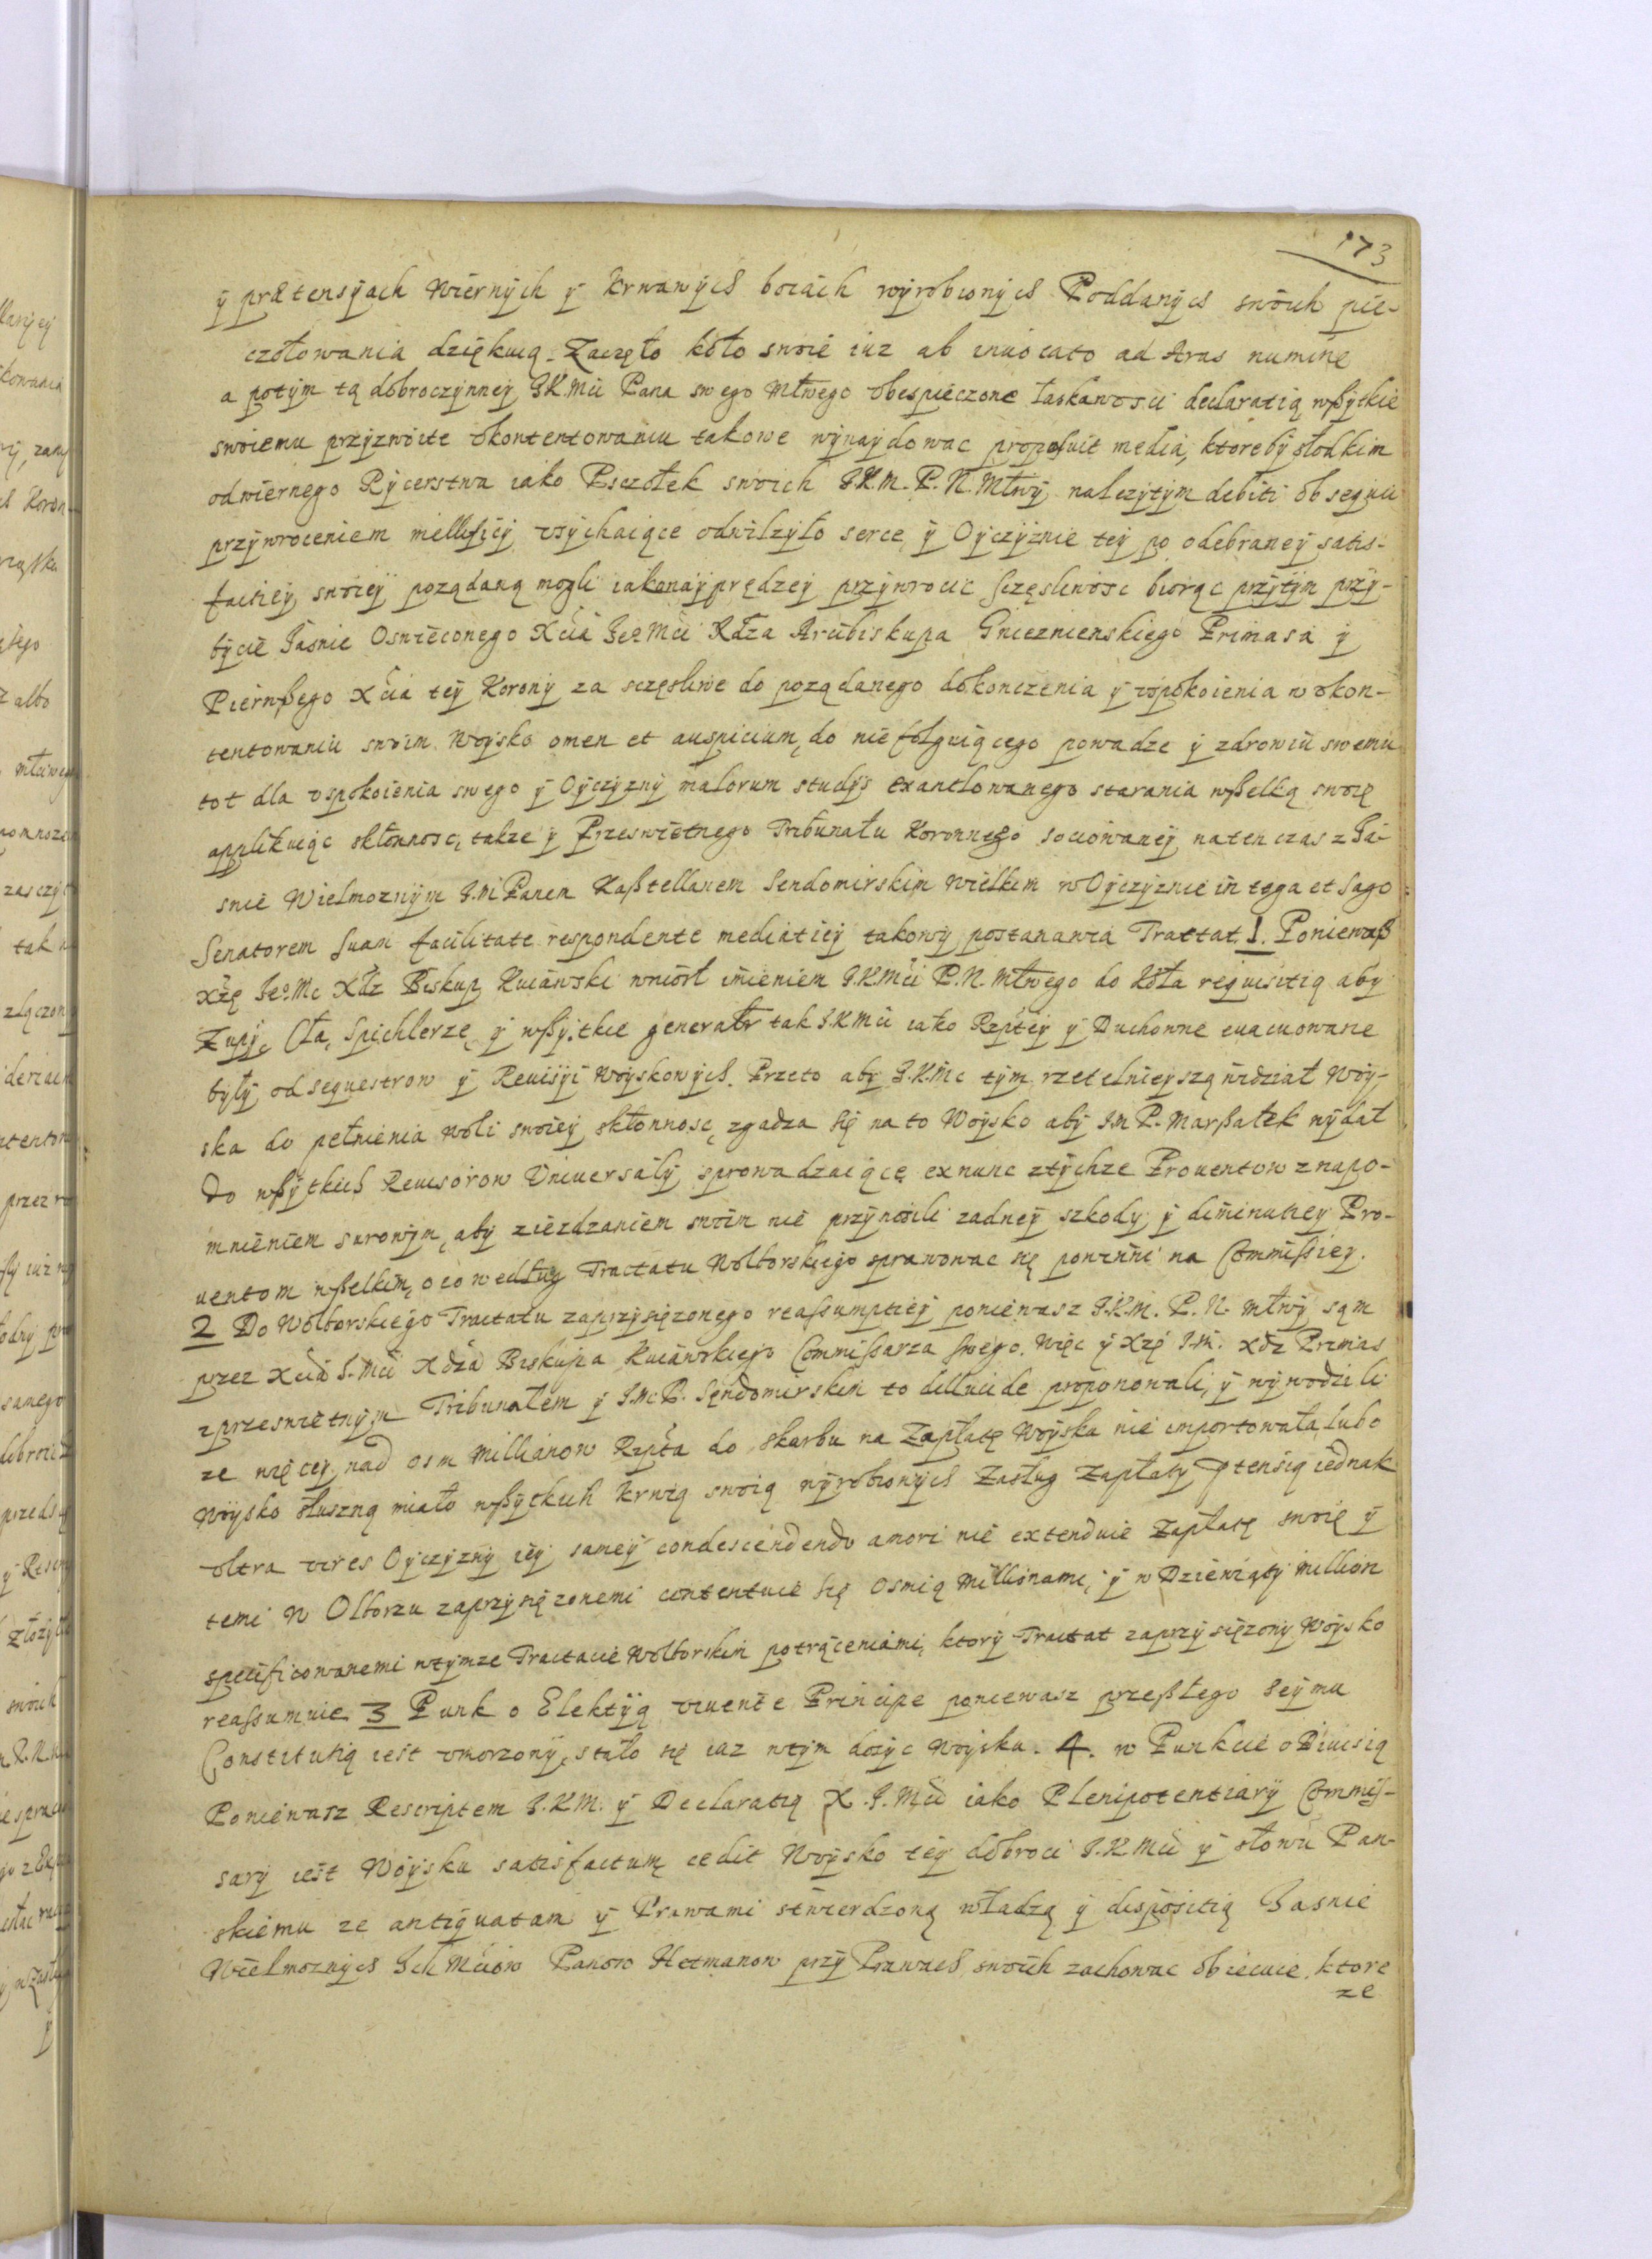 173
ÿ prætensÿach wiernÿch ÿ krwawÿch bojach wÿrobionÿch Poddanÿch swoich pie-
czołowania dziękuią. Zaczęło koło swoie iuz ab inuocato ad Aras numine
a potÿm tą dobroczÿnneÿ J.K.Mci Pana swego Młwego obespieczone łaskawosci declaratią wßÿtkie
swoiemu przÿzwoite vkontentowaniu takowe wÿnaÿdowac proposuit media, ktorebÿ słodkim
odwiernego Rÿcerstwa iako Psczołek swoich J.K.M. P. N. Młwÿ nalezÿtÿm debiti obsequii
przÿwroceniem mellificÿ vsÿchaiące odwilzÿło serce, ÿ Oÿczÿznie teÿ po odebraneÿ satis-
factieÿ swoieÿ pozadaną mogli iakonaÿprędzeÿ przÿwrocic sczęsliwosc biorąc przÿtÿm przÿ-
bÿcie Jasnie Oswieconego Xcia Jeo Mci Xdza Arcibiskupa Gnieznienskiego Primasa ÿ
Pierwßego Xcia teÿ Koronÿ za sczęsliwe do poządanego dokonczenia ÿ vspokoienia w vkon-
tentowaniu swoim Woÿsko omen et auspicium, do niefolguiącego powadze ÿ zdrowiu swemu
tot dla vspokoienia swego ÿ Oÿczÿznÿ malorum studÿs exantlowanego starania wßelką swoię
applikuiąc skłonnosc, takze ÿ Przeswietnego Tribunału Koronnego sociowaneÿ natenczas z Ja-
snie Wielmoznÿm J.M Panem Kaßtellanem Sendomirskim wielkim w Oÿczÿznie in toga et sago
Senatorem suam facilitate respondente mediatieÿ takowÿ postanawia Tractat. 1. Poniewaß
Xżę Jeo Mc Xdz Biskup Kuiawski wniosł imieniem J.K.Mci P.N. Młwego do Koła requisitią abÿ
Zupÿ, Cła, Spichlerze, ÿ wßÿtkie generałr tak J.K.Mci iako Rzpteÿ ÿ Duchowne euacuowane
bÿłÿ od sequestrow ÿ Reuisÿi Woÿskowÿch. Przeto abÿ J.K.Mc tÿm rzetelnieÿszą widział Woÿ-
ska do pełnienia woli swoieÿ skłonnosc, zgadza się na to Woÿsko abÿ J.M P. Marßałek wÿdał
Do wßÿtkich Reuisorow Uniuersałÿ sprowadzaiące ex nunc ztÿchze Prouentow z napo-
mnieniem surowÿm, abÿ ziezdzaniem swoim nie przÿnosili zadneÿ szkodÿ ÿ diminutieÿ Pro-
uentom wßelkim, o co według Tractatu Wolborskiego sprawowac się powinni na Commissieÿ.
2 Do Wolborskiego Tractatu zaprzÿsięzonego reassumptieÿ poniewasz J.K.M. P. N. Młwÿ sąm
przez Xcia J. Mci Xdza Biskupa Kuiawskiego Commissarza swego. Więc ÿ Xzę J.M. Xdz Primas
z przeswietnÿm Tribunałem ÿ J.Mc P. Sęndomirskim to dillucide proponowali, ÿ wÿwodzili
ze więceÿ nad osm Millianow Rzpta do skarbu na Zapłatę Woÿska nie importowała, lubo
Woÿsko słuszną miało wßÿtkich krwią swoią wÿrobionÿch Zasług Zapłatÿ ptensią iednak
vltra vires Oÿczÿznÿ ieÿ sameÿ condescendendo amori nie extenduie Zapłatę swoię ÿ
temi w Olborzu zaprzÿsięzonemi contentuie się Osmią Millionami, ÿ w Dziewiątÿ Million
specificowanemi wtÿmze Tractacie Wolborskim potrąceniami, ktorÿ Tractat zaprzÿsięzonÿ Woÿsko
reassumuie. 3 Punk o Elektÿą viuente Principe poniewasz przeßłego Seÿmu
Constitutią iest vmorzonÿ, stało się iuz wtÿm dosÿc Woÿsku. 4. w Punkcie o Diuisią
Poniewasz Rescriptem J.K.M. ÿ Declaratią X. J. Mci iako Plenipotentiarÿ Commis-
sarÿ iest Woÿsku satisfactum, cedit Woÿsko teÿ dobroci J.K.Mci ÿ słowu Pan-
skiemu ze antiquatam ÿ Prawami stwierdzoną władzą ÿ dispositią Jasnie
Wielmoznÿch Ich Mciow Panow Hetmanow przÿ Prawach swoich zachowac obiecuie, ktore
ze